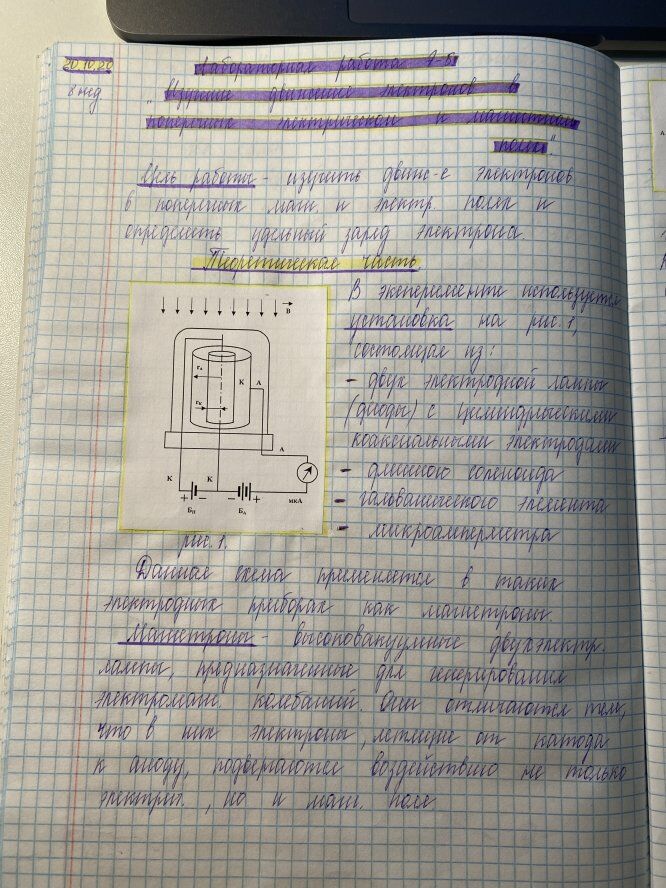 20.10.20
8 нед.
Лабораторная работа 7-6
"Изучение движение электронов в
поперечных электрическом и магнитном
полях".
Цель работы - изучить движ-е электронов
в поперечных магн. и электр. полях и
определить удельный заряд электрона.
Теоретическая часть
В эксперементе используется
установка на рис. 1,
состоящая из:
- двух электродной лампы
(диоды) с цилиндрическими
коаксиальными электродами
- длинного соленоида
- гальванического элемента
- микроамперметра
B
rА
K A
rК
A
K K
+ − − +
БН БА мкА
рис. 1.
Данная схема применяется в таких
электродных приборах как магнетроны.
Магнетроны - высоковакуумные двухэлектр.
лампы, предназначенные для генерирования
электромагн. колебаний. Они отличаются тем,
что в них электроны, летящие от катода
к аноду, подвергаются воздействию не только
электрич., но и магн. поле